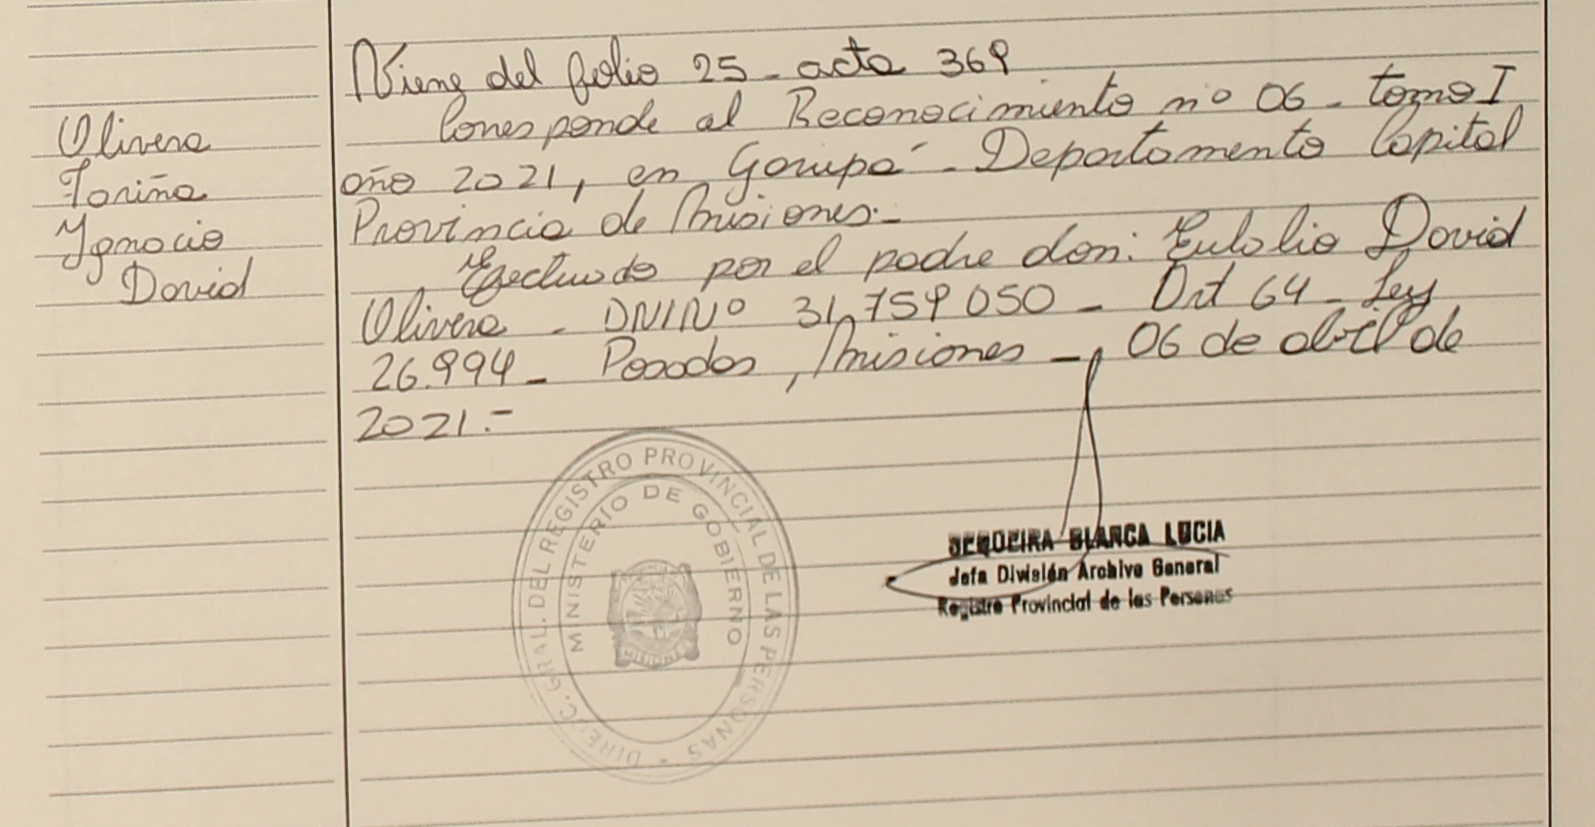 Olivera
Fariña
Ygnacio
David
Viene del folio 25 - acta 369
Corresponde al Reconocimiento nº 06 - tomo I
año 2021, en Garupá - Departamento Capital
Provincia de Misiones.-
Efectuado por el padre don: Eulalio David
Olivera - DNI Nº 31.759.050 - Art 64 - Ley
26.994 - Posadas, Misiones -, 06 de abril de
2021.-
DIRECC. GRAL. DEL REGISTRO PROVINCIAL DE LAS PERSONAS
MINISTERIO DE GOBIERNO
MISIONES
SEQUEIRA BLANCA LUCIA
Jefa División Archivo General
Registro Provincial de las Personas